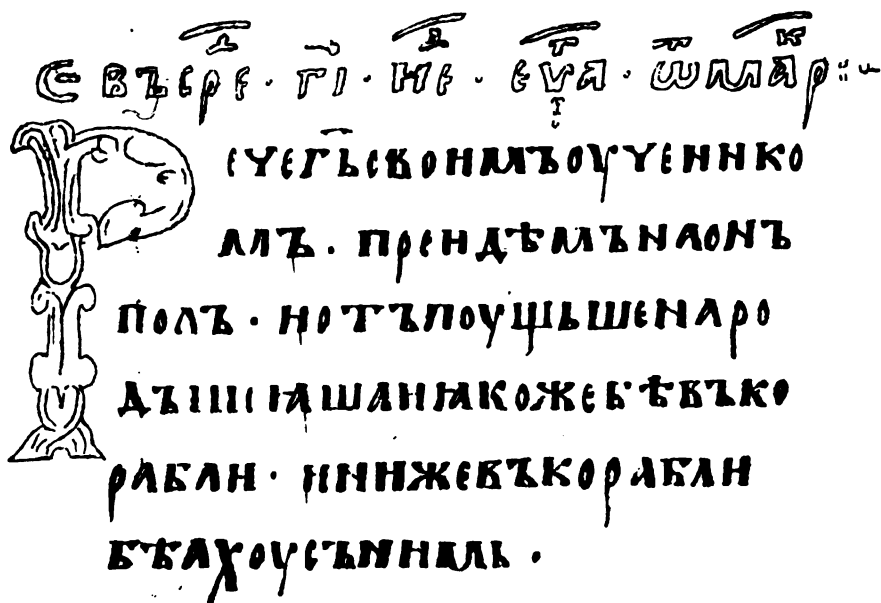 С ВЪ СРЕ҃Д · Г҃І · НЕ҃Д · ЕѴ҃Т҃А · Ѿ МАР҃К ::~
РЕЧЕГ҃ЬСВОИМЪОУЧЕНИКО
МЪ · ПРЕИДѢМЪНАОНЪ
ПОЛЪ · ИОТЪПОУЩЬШЕНАРО
ДЪІПОꙖШАИꙖКОЖЕБѢВЪКО
РАБЛИ · ИИНИЖЕВЪКОРАБЛИ
БѢАХОУСЪНИМЬ ·